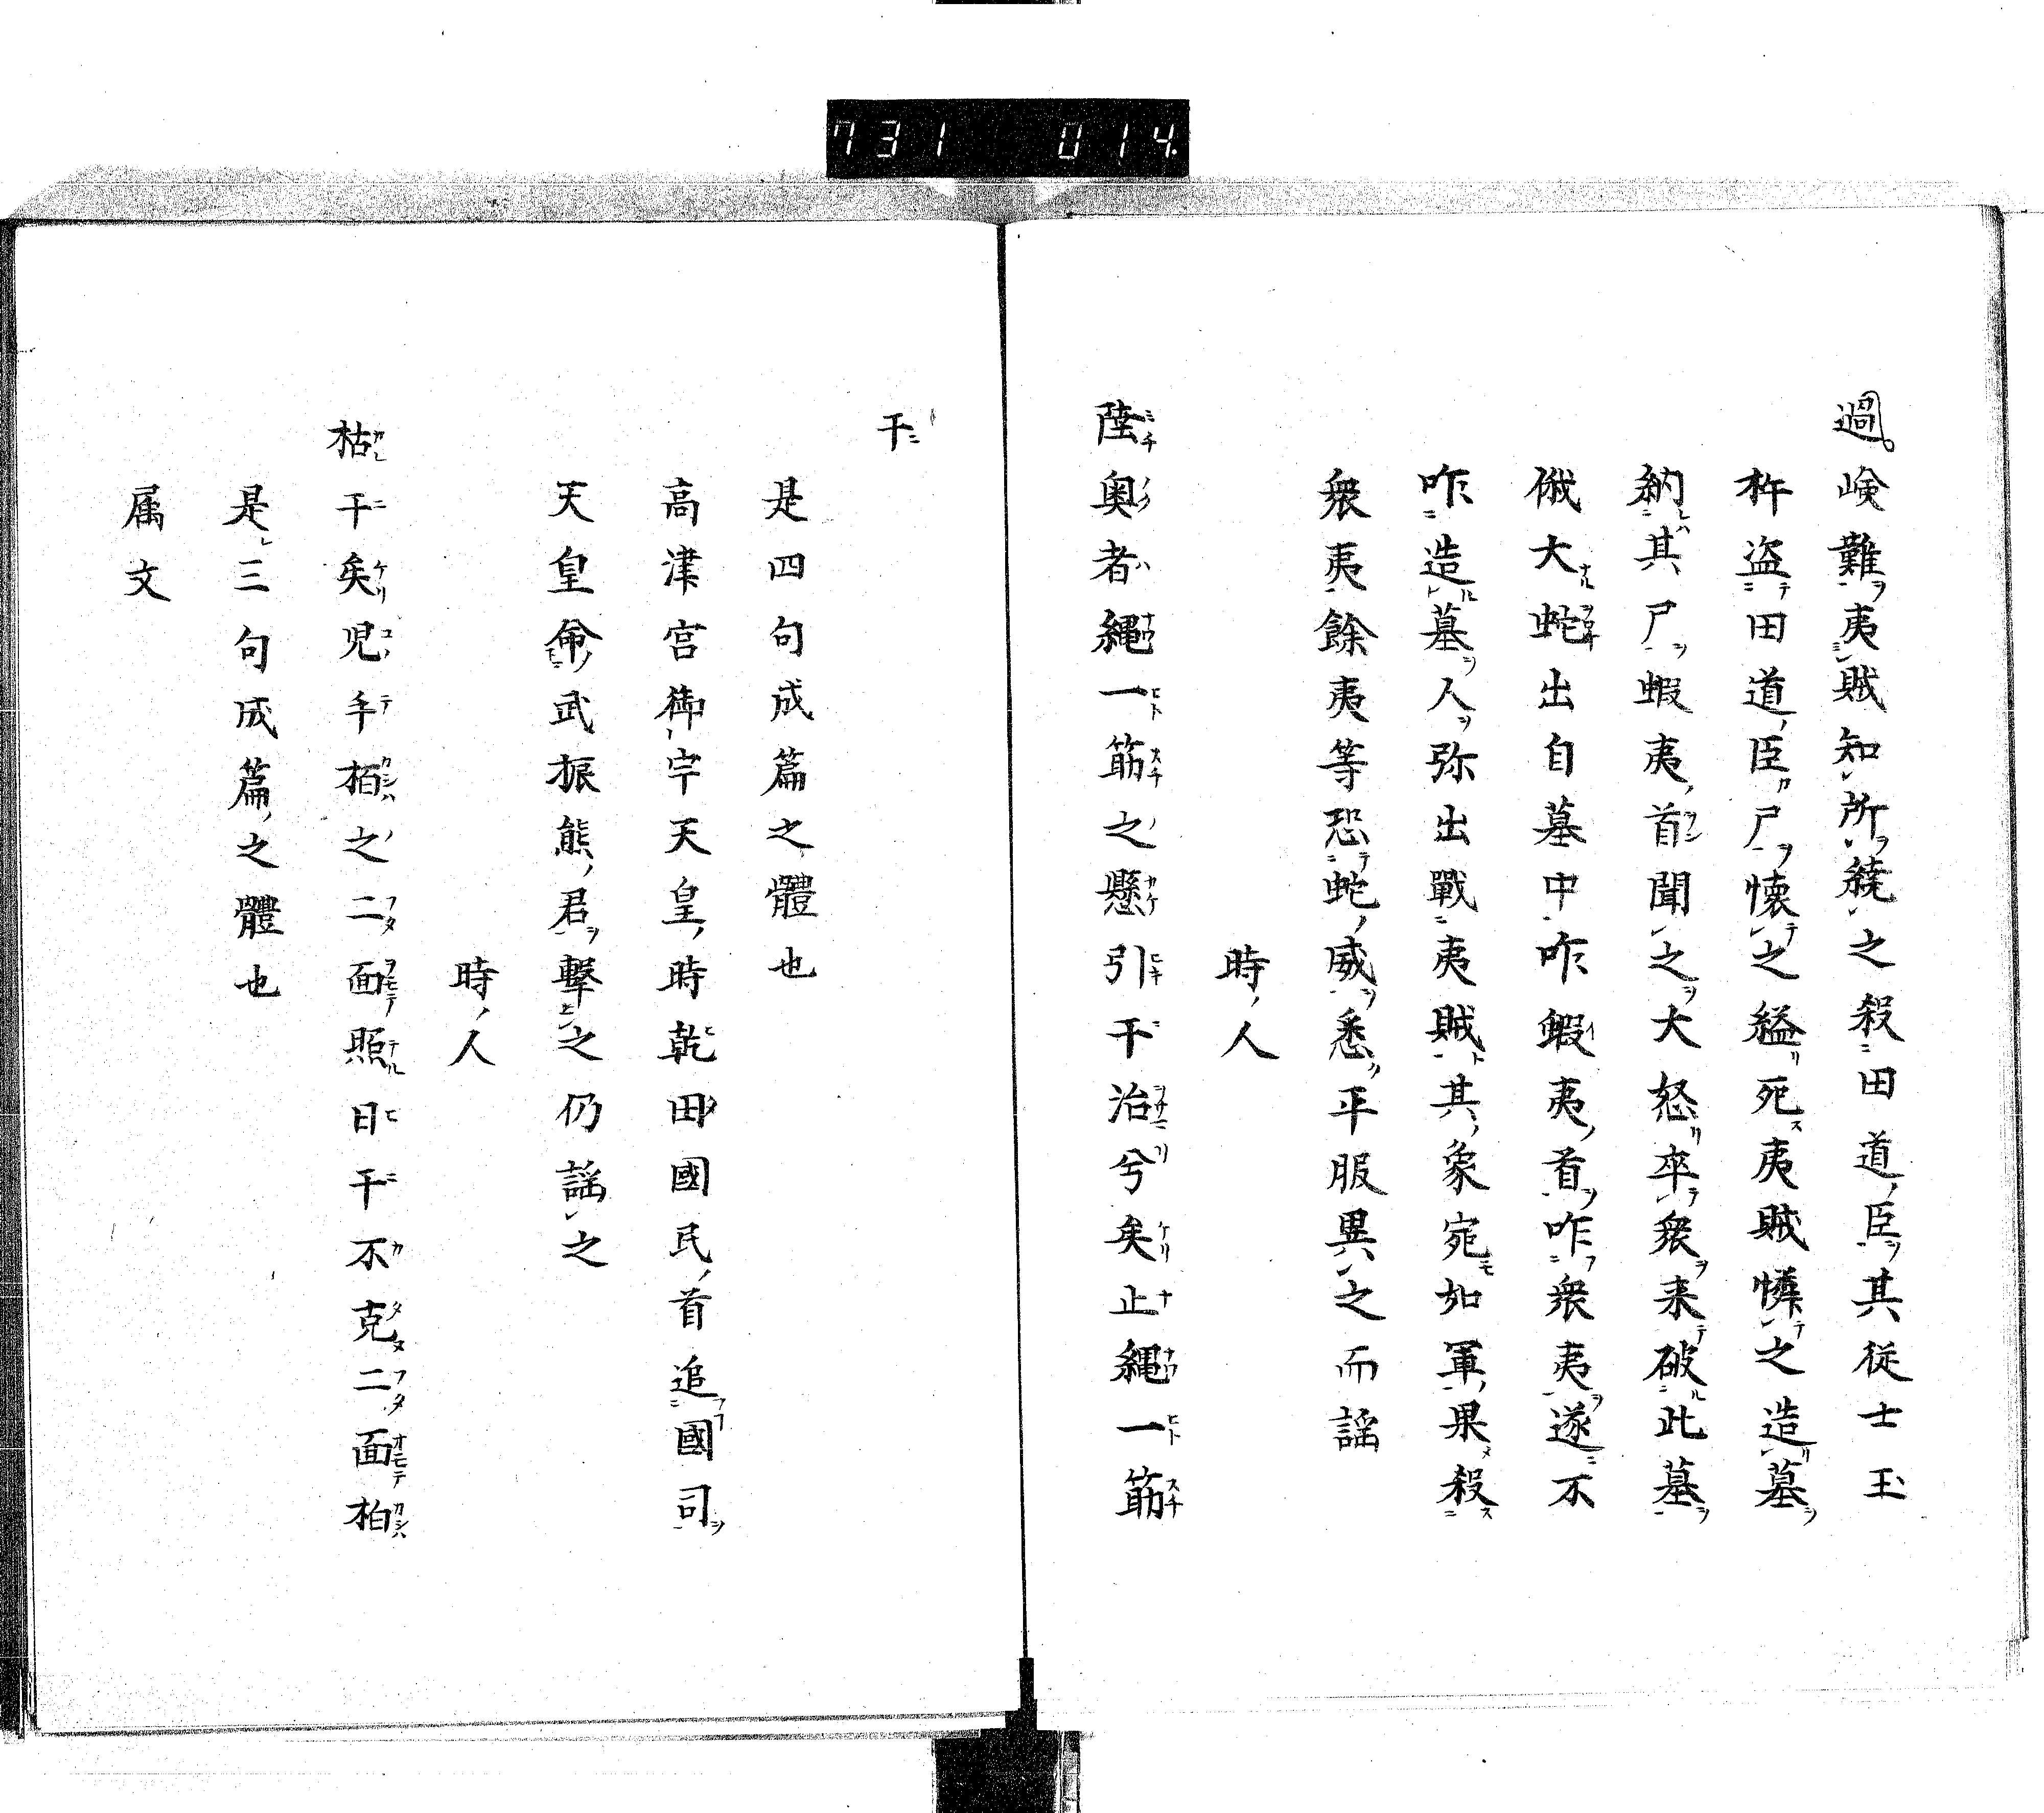 731 014
過嶮難夷賊知所繞之殺田道臣其従士玉
杵盗田道臣尸懐之縊死夷賊憐之造墓
納其尸蝦夷首聞之大怒卒衆来破此墓
俄大蛇出自墓中咋蝦夷首咋衆夷遂不
咋造墓人弥出戰夷賊其象宛如軍果殺
衆夷餘夷等恐蛇威悉平服異之而謡
時人
陸奥者縄一筋之懸引干治兮矣止縄一筋
干
是四句成篇之體也
高津宮御宇天皇時乾田國民首追國司
天皇命武振熊君撃之仍謡之
時人
枯干矣児手栢之二面照日干不克二面柏
是三句成篇之體也
属文